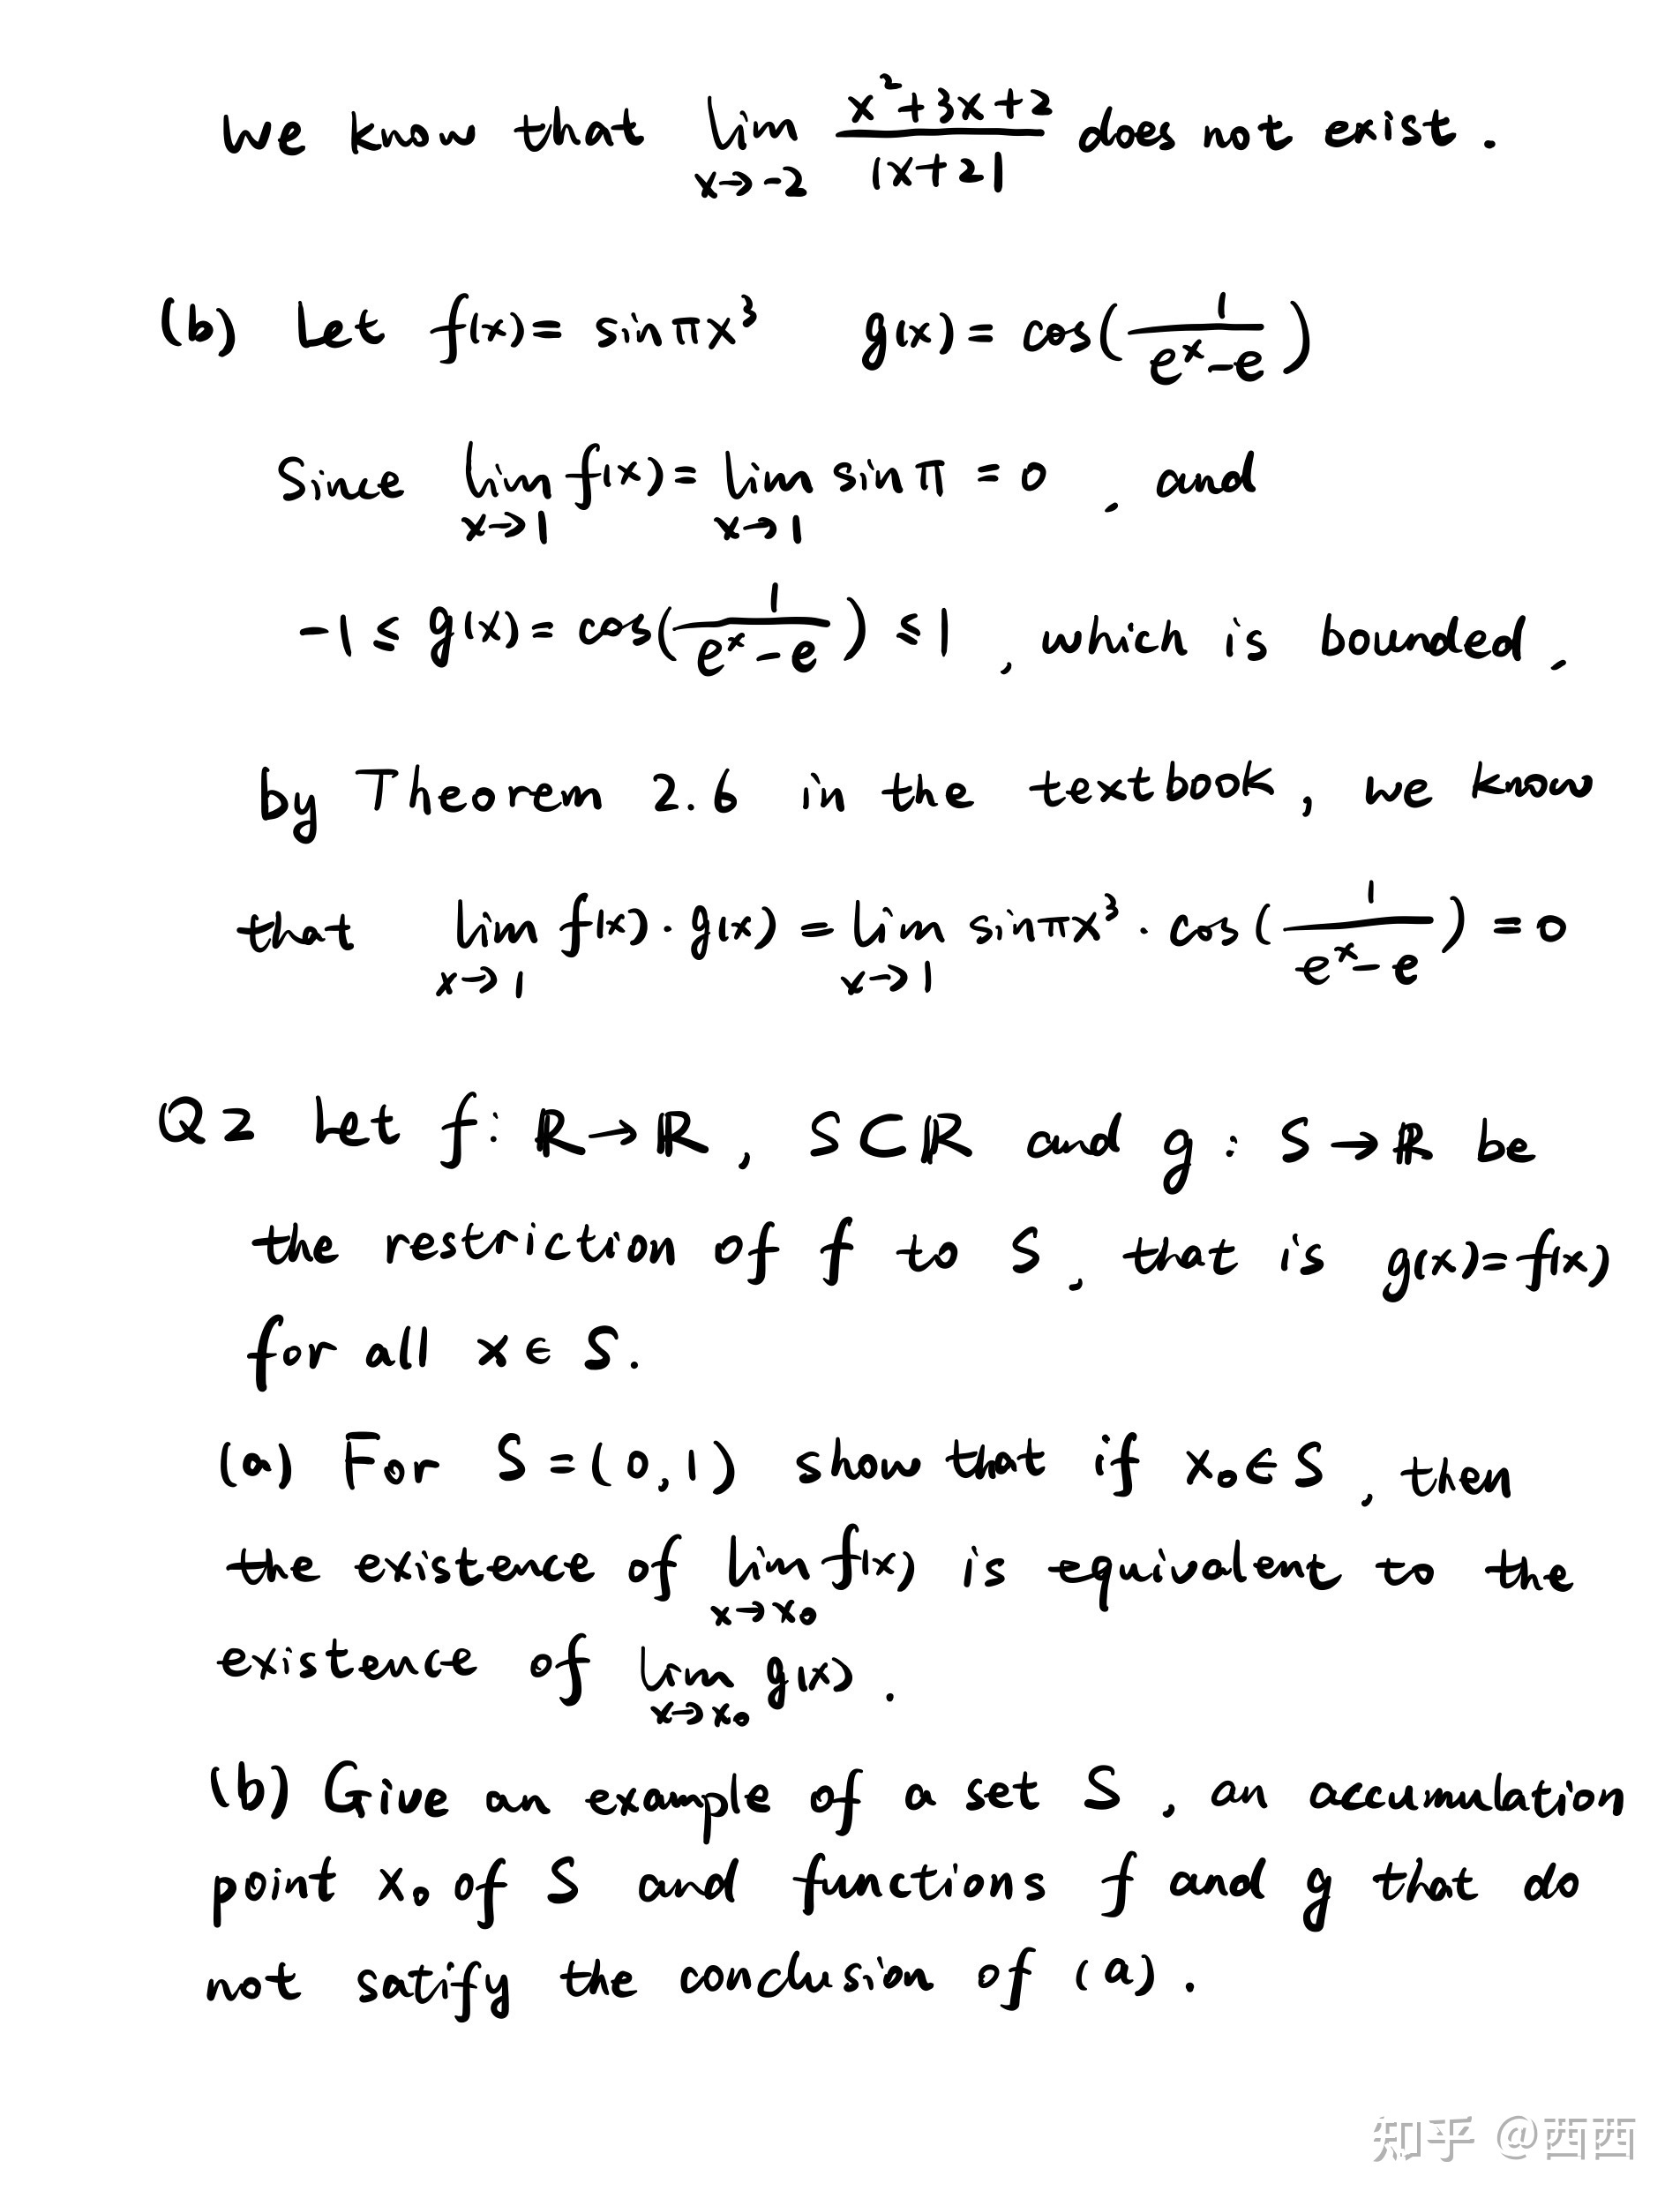 We know that lim x→-2 (x²+3x+2)/|x+2| does not exist.
(b) Let f(x)= sinπx³ g(x)= cos(1/(eˣ-e))
Since lim x→1 f(x)= lim x→1 sinπ = 0 , and
-1 ≤ g(x)= cos(1/(eˣ-e)) ≤ 1 , which is bounded,
by Theorem 2.6 in the textbook, we know
that lim x→1 f(x)·g(x) = lim x→1 sinπx³ · cos(1/(eˣ-e)) = 0
Q2 Let f: ℝ→ℝ, S⊂ℝ and g: S→ℝ be
the restriction of f to S, that is g(x)=f(x)
for all x∈S.
(a) For S=(0,1) show that if x₀∈S, then
the existence of lim x→x₀ f(x) is equivalent to the
existence of lim x→x₀ g(x).
(b) Give an example of a set S, an accumulation
point x₀ of S and functions f and g that do
not satify the conclusion of (a).
知乎 @西西